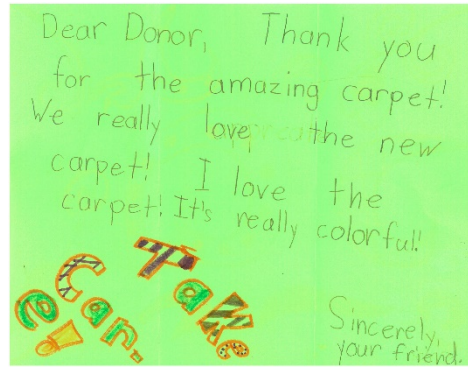 Dear Donor, Thank you
for the amazing carpet!
We really love the new
carpet! I love the
carpet! It's really colorful!
Take
Care!
Sincerely,
your friend.